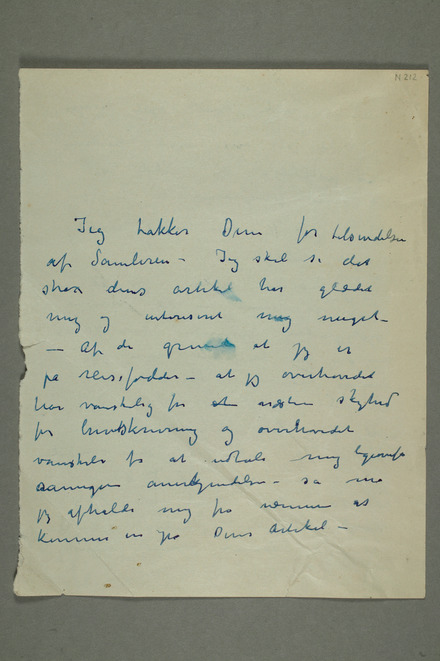 N 212
Jeg takker Dem for tilsendelsen
af Samleren – Jeg skal si det
strax deres artikel har glædet
mig og interesseret mig meget –
– Af de grunde at jeg er
på reisefødder – at jeg overhovedet
har vanskelig for at
for brevskrivning og overhovedet
vanskelig for at udtale mig
anerkjendelse – så må
jeg afholde mig fra nærmere at
komme in på Deres Artikel –